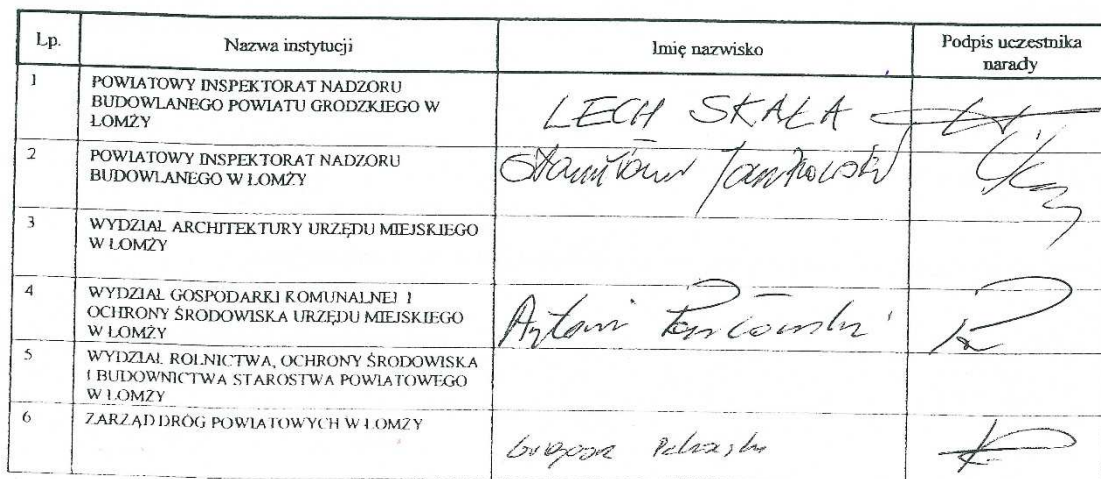 Lp. Nazwa instytucji Imię nazwisko Podpis uczestnika
narady
1 POWIATOWY INSPEKTORAT NADZORU
BUDOWLANEGO POWIATU GRODZKIEGO W
ŁOMŻY
LECH SKAŁA
2 POWIATOWY INSPEKTORAT NADZORU
BUDOWLANEGO W ŁOMŻY
Stanisław Jankowski
3 WYDZIAŁ ARCHITEKTURY URZĘDU MIEJSKIEGO
W ŁOMŻY
4 WYDZIAŁ GOSPODARKI KOMUNALNEJ I
OCHRONY ŚRODOWISKA URZĘDU MIEJSKIEGO
W ŁOMŻY
Antoni
5 WYDZIAŁ ROLNICTWA, OCHRONY ŚRODOWISKA
I BUDOWNICTWA STAROSTWA POWIATOWEGO
W ŁOMŻY
6 ZARZĄD DRÓG POWIATOWYCH W ŁOMŻY
Grzegorz